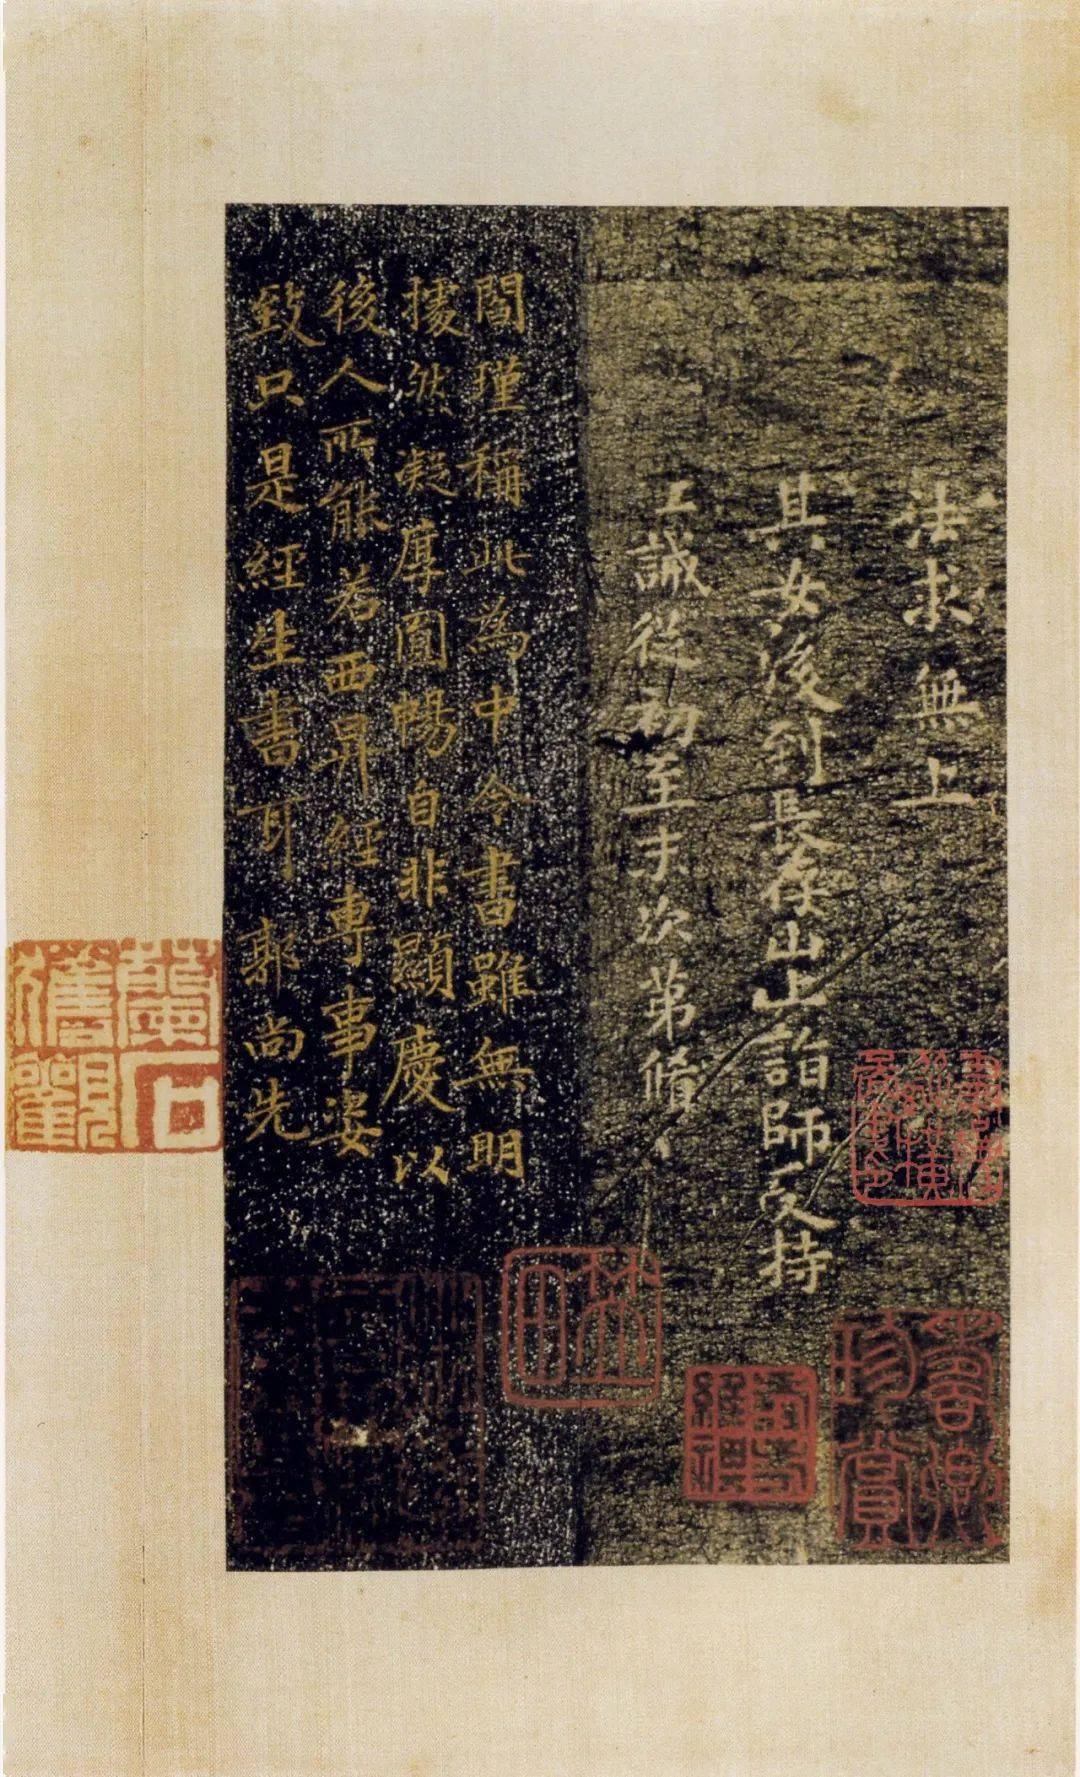 法求無上
其女後到長存山止詣師受持
誡從初至次第脩
閻瑾稱此為中令書雖無明
據然凝厚圓暢自非顯慶以
後人所能若西昇經專事姿
致只是經生書耳 郭尚先